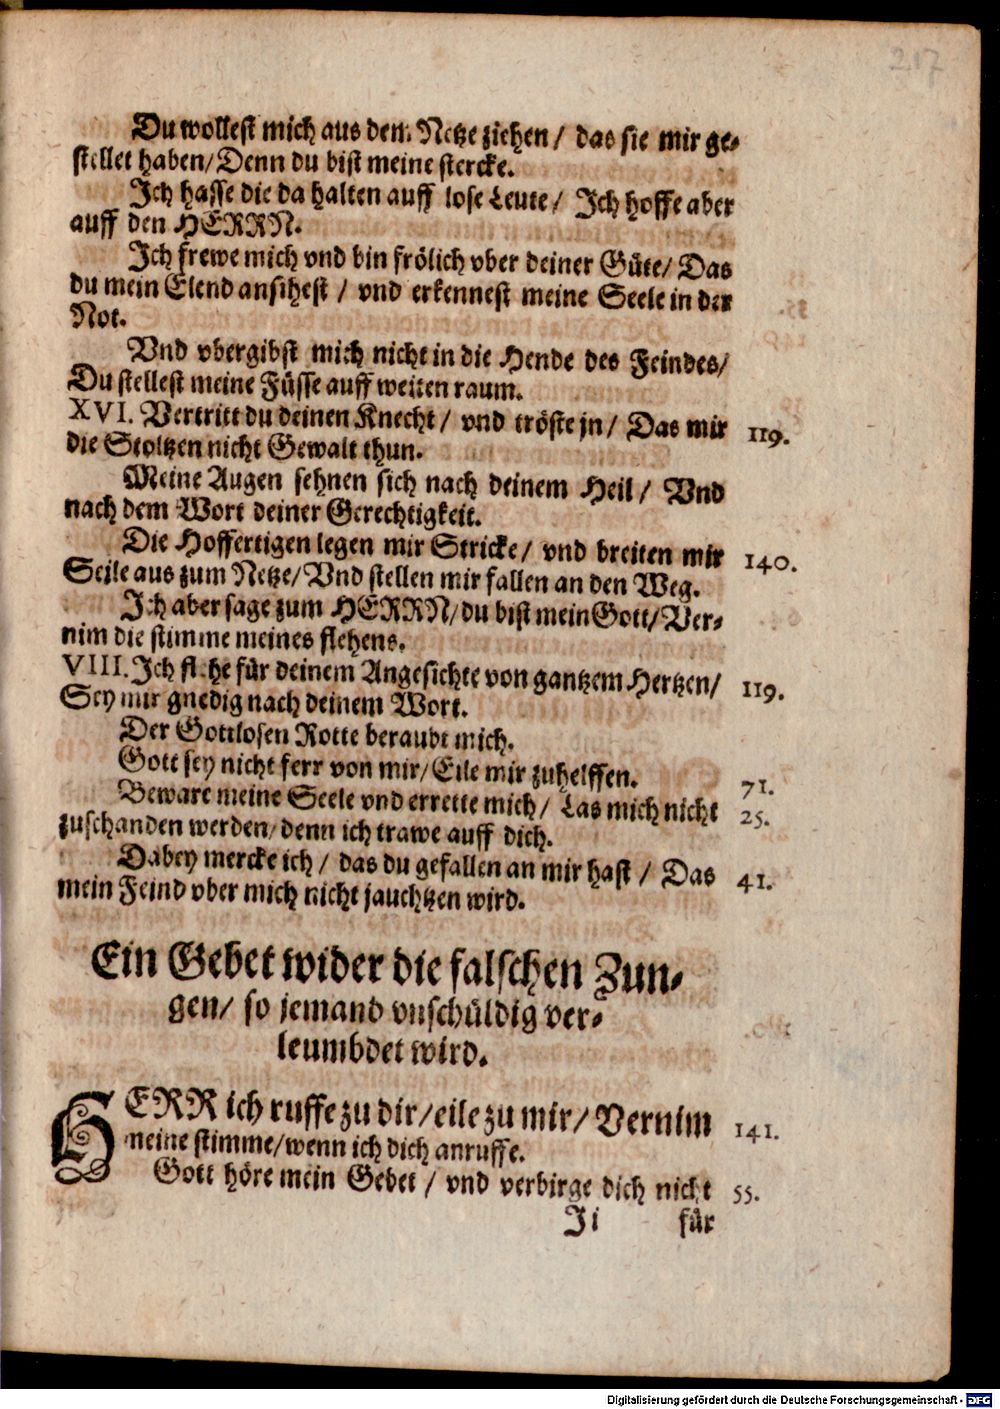 217
Du wollest mich aus dem Netze ziehen / das sie mir ge-
stellet haben/ Denn du bist meine stercke.
Ich hasse die da halten auff lose Leute / Ich hoffe aber
auff den HERRN.
Ich frewe mich vnd bin frölich vber deiner Güte/ Das
du mein Elend ansihest / vnd erkennest meine Seele in der
Not.
Vnd vbergibst mich nicht in die Hende des Feindes/
Du stellest meine Füsse auff weiten raum.
XVI. Vertritt du deinen Knecht / vnd tröste jn / Das mir 119.
die Stoltzen nicht Gewalt thun.
Meine Augen sehnen sich nach deinem Heil / Vnd
nach dem Wort deiner Gerechtigkeit.
Die Hoffertigen legen mir Stricke / vnd breiten mir 140.
Seile aus zum Netze/ Vnd stellen mir fallen an den Weg.
Ich aber sage zum HERRN/ du bist mein Gott/ Ver-
nim die stimme meines flehens.
VIII. Ich flehe für deinem Angesichte von gantzem Hertzen/ 119.
Sey mir gnedig nach deinem Wort.
Der Gottlosen Rotte beraubt mich.
Gott sey nicht ferr von mir/ Eile mir zuhelffen. 71.
Beware meine Seele vnd errette mich/ Las mich nicht 25.
zuschanden werden/ denn ich trawe auff dich.
Dabey mercke ich / das du gefallen an mir hast / Das 41.
mein Feind vber mich nicht jauchtzen wird.
Ein Gebet wider die falschen Zun-
gen/ so jemand vnschüldig ver-
leumbdet wird.
HERR ich ruffe zu dir/ eile zu mir/ Vernim 141.
meine stimme/ wenn ich dich anruffe.
Gott höre mein Gebet / vnd verbirge dich nicht 55.
Ji für
Digitalisierung gefördert durch die Deutsche Forschungsgemeinschaft - DFG